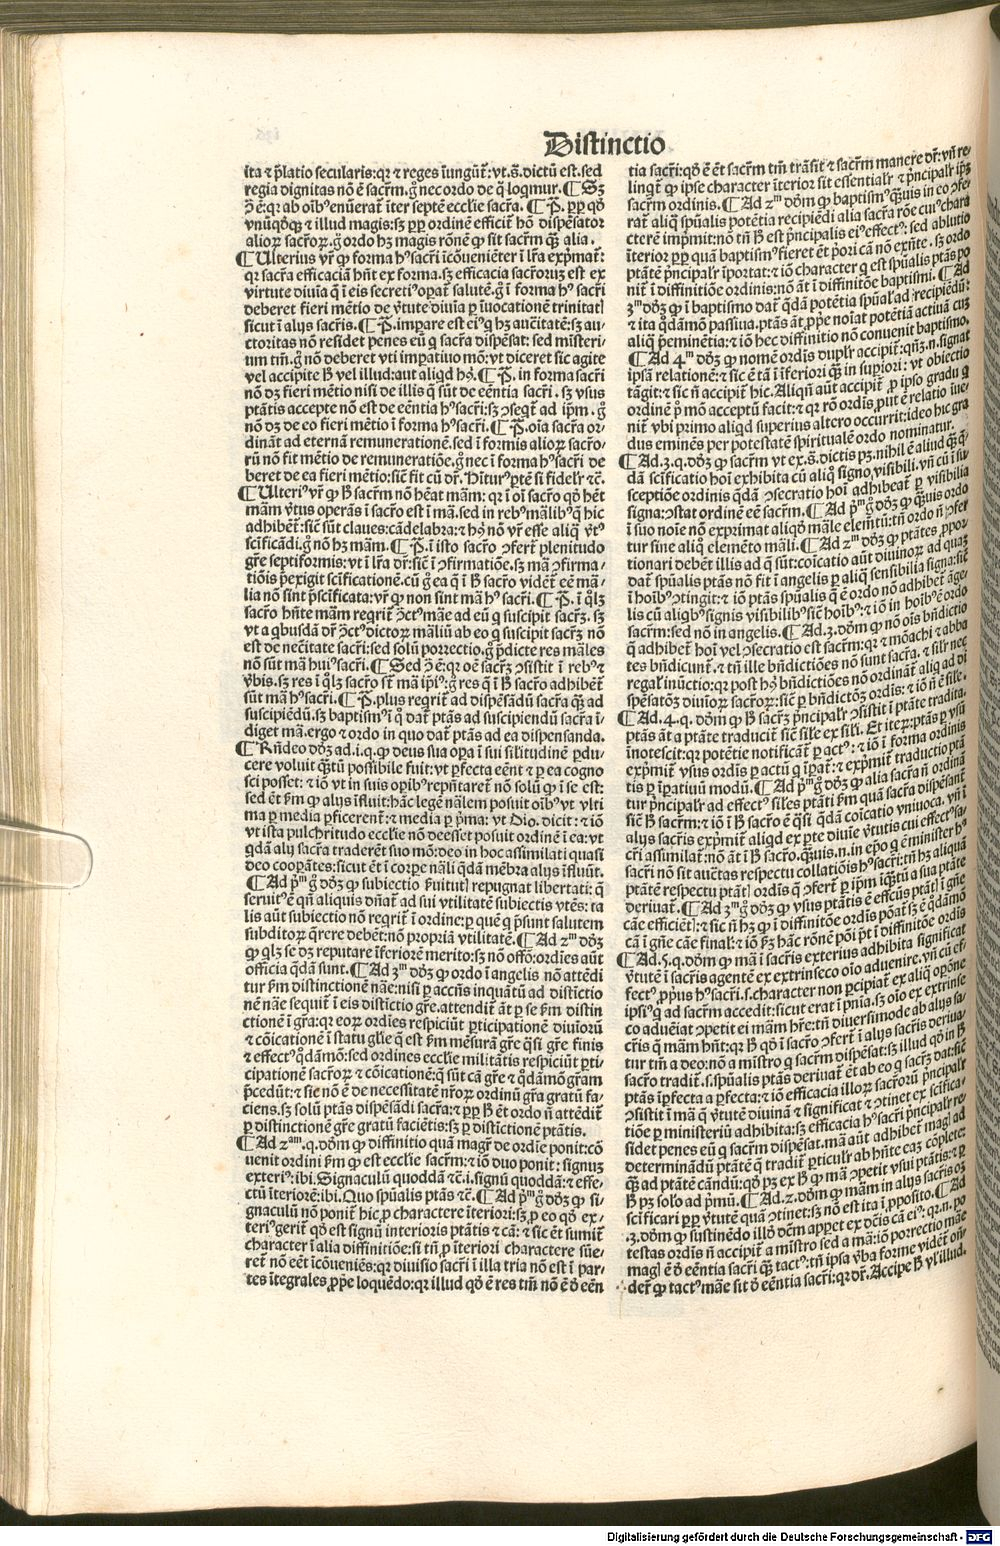 Distinctio
ita ⁊ p̄latio secularis: qꝛ ⁊ reges īungūt᷑: vt. s̄. dictū est. sed
regia dignitas nō ē sacr̄m. g̊ nec ordo de q̄ loqmur. ¶ Sꝫ
ꝯ ē: qꝛ ab oībꝰ enūerat᷑ īter septē ecclīe sacr̄a. ¶ P̄. ꝓpꝑ qd̄
vnūqd̄qꝫ ⁊ illud magis: sꝫ ꝓpꝑ ordinē efficit᷑ hō dispēsator
alioꝝ sacr̄oꝝ. g̊ ordo hꝫ magis rōnē ꝙ sit sacr̄m qꝫ̄ alia.
¶ Ulterius vr̄ ꝙ forma hꝰ sacr̄i īcōueniēter ī lr̄a exp̄mat᷑:
qꝛ sacr̄a efficaciā hn̄t ex forma. sꝫ efficacia sacr̄oruꝫ est ex
virtute diuīa q̄ ī eis secretiꝰ oꝑat᷑ salutē. g̊ ī forma hꝰ sacr̄i
deberet fieri mētio de v̄tute diuīa ꝑ īuocationē trinitatꝭ
sicut ī alijs sacr̄is. ¶ P̄. impare est eiꝰ q hꝫ auc̄itatē: sꝫ au-
ctoritas nō residet penes eū q sacr̄a dispēsat: sed mīsteri-
um tm̄. g̊ nō deberet vti impatiuo mō: vt diceret sic agite
vel accipite ꝧ vel illud: aut aliqd hꝰ. ¶ P̄. in forma sacr̄i
nō dꝫ fieri mētio nisi de illis q̄ sūt de eēntia sacr̄i. sꝫ vsus
ptātis accepte nō est de eēntia hꝰ sacr̄i: sꝫ ꝯseqt᷑ ad ip̄m. g̊
nō dꝫ de eo fieri mētio ī forma hꝰ sacr̄i. ¶ P̄. oīa sacr̄a or-
dināt᷑ ad eternā remunerationē. sed ī formis alioꝝ sacr̄o-
rū nō fit mētio de remuneratiōe. g̊ nec ī forma hꝰ sacr̄i de
beret de ea fieri mētio: sic̄ fit cū dr̄. Hr̄turꝰ ꝑtē si fidelr̄ ⁊c̄.
¶ Ulteriꝰ vr̄ ꝙ ꝧ sacr̄m nō hēat mām: qꝛ ī oī sacr̄o qd̄ hēt
mām v̄tus operās ī sacr̄o est ī mā. sed in rebꝰ mālibꝰ q̄ hic
adhibēt᷑: sic̄ sūt claues: cādelabra: ⁊ hꝰ nō vr̄ esse aliq̄ v̄tꝰ
sc̄ificādi. g̊ nō hꝫ mām. ¶ P̄. ī isto sacr̄o ꝯfert᷑ plenitudo
gr̄e septiformis: vt ī lr̄a dr̄: sic̄ ī ꝯfirmatiōe. sꝫ mā ꝯfirma-
tiōis p̄exigit sc̄ificationē. cū g̊ ea q̄ ī ꝧ sacr̄o vidēt᷑ eē mā-
lia nō sint p̄sc̄ificata: vr̄ ꝙ non sint mā hꝰ sacr̄i. ¶ P̄. ī q̊lꝫ
sacr̄o hn̄te mām reqrit᷑ ꝯtctꝰ māe ad eū q suscipit sacr̄ꝫ. sꝫ
vt a qbusdā dr̄ ꝯtctꝰ dictoꝝ māliū ab eo q suscipit sacr̄ꝫ nō
est de nec̄itate sacr̄i: sed solū porrectio. g̊ p̄dicte res māles
nō sūt mā huiꝰ sacr̄i. ¶ Sed ꝯ ē: qꝛ oē sacr̄ꝫ ꝯsistit ī rebꝰ ⁊
v̄bis. sꝫ res ī q̊lꝫ sacr̄o st̄ mā ip̄iꝰ: g̊ res q̄ ī ꝧ sacr̄o adhibēt᷑
sūt mā hꝰ sacr̄i. ¶ P̄. plus reqrit᷑ ad dispēsādū sacr̄a qꝫ̄ ad
suscipiēdū. sꝫ baptismꝰ ī q̊ dat᷑ ptās ad suscipiendū sacr̄a ī-
diget mā. ergo ⁊ ordo in quo dat᷑ ptās ad ea dispensanda.
¶ Rn̄deo dd̄ꝫ ad .i. q. ꝙ deus sua oꝑa ī sui silitudinē ꝓdu-
cere voluit qꝫ̄tū possibile fuit: vt ꝑfecta eēnt ⁊ ꝑ ea cogno
sci posset: ⁊ iō vt in suis oꝑibꝰ rep̄ntaret᷑ nō solū ꝙ ī se est:
sed ēt ẜm ꝙ alijs īfluit: hāc legē nālem posuit oībꝰ vt vlti
ma ꝑ media ꝑficerent᷑: ⁊ media ꝑ p̄ma: vt Dio. dicit: ⁊ iō
vt ista pulchritudo ecclīe nō deesset posuit ordinē ī ea: vt
qdā alij sacr̄a traderēt suo mō: deo in hoc assimilati quasi
deo cooꝑātes: sicut ēt ī corꝑe nāli qdā mēbra alijs īfluūt.
¶ Ad pᵐ g̊ dd̄ꝫ ꝙ subiectio ẜuitutꝭ repugnat libertati: q̄
seruitꝰ ē qn̄ aliquis dn̄at᷑ ad sui vtilitatē subiectis vtēs: ta
lis aūt subiectio nō reqrit᷑ ī ordine: ꝑ quē q p̄sunt salutem
subditoꝝ q̄rere debēt: nō propriā vtilitatē. ¶ Ad 2ᵐ dd̄ꝫ
ꝙ qlꝫ se dꝫ reputare īferiorē merito: sꝫ nō offō: ordīes aūt
officia qdā sunt. ¶ Ad 3ᵐ dd̄ꝫ ꝙ ordo ī angelis nō attēdi
tur ẜm distinctionē nāe: nisi ꝑ accn̄s inquātū ad distīctio
nē nāe sequit᷑ ī eis distīctio gr̄e. attendit᷑ āt ꝑ se ẜm distin
ctionē ī gr̄a: qꝛ eoꝝ ordīes respiciūt ꝑticipationē diuīorū
⁊ cōicationē ī statu gl̄ie q̄ est ẜm mēsurā gr̄e q̄si gr̄e finis
⁊ effectꝰ qd̄āmō: sed ordines ecclīe militātis respiciūt ꝑti-
cipationē sacr̄oꝝ ⁊ cōicationē: q̄ sūt cā gr̄e ⁊ qd̄āmō gr̄am
p̄cedūt: ⁊ sic nō ē de necessitate nr̄oꝝ ordinū gr̄a gratū fa-
ciens. sꝫ solū ptās dispēsādi sacr̄a: ⁊ ꝓpꝑ ꝧ ēt ordo nō attēdit᷑
ꝑ distinctionē gr̄e gratū faciētis: sꝫ ꝑ distīctionē ptātis.
¶ Ad 2ᵃᵐ. q. dd̄m ꝙ diffinitio quā magr̄ de ordīe ponit: cō
uenit ordini ẜm ꝙ est ecclīe sacr̄m: ⁊ iō duo ponit: signuꝫ
exteriꝰ: ibi. Signaculū quoddā ⁊c̄. i. signū quoddā: ⁊ effe-
ctū īteriorē: ibi. Quo spūalis ptās ⁊c̄. ¶ Ad pᵐ g̊ dd̄ꝫ ꝙ si-
gnaculū nō ponit᷑ hic ꝓ charactere īteriori: sꝫ ꝓ eo qd̄ ex-
teriꝰ gerit᷑ qd̄ est signū interioris ptātis ⁊ cā: ⁊ sic ēt sumit᷑
character ī alia diffinitiōe: si tn̄ ꝓ īteriori charactere sūe-
ret᷑ nō eēt īcōueniēs: qꝛ diuisio sacr̄i ī illa tria nō est ī par-
tes ītegrales ꝓpꝑe loquēdo: qꝛ illud qd̄ ē res tm̄ nō ē d̄ eēn
tia sacr̄i: qd̄ ē ēt sacr̄m tm̄ trāsit ⁊ sacr̄m manere dr̄: vn̄ re-
linqt᷑ ꝙ ipse character īterior sit essentialr̄ ⁊ p̄ncipalr̄ ip̄ꝫ
sacr̄m ordinis. ¶ Ad 2ᵐ dd̄m ꝙ baptismꝰ qꝫ̄uis in eo ꝯfe-
rat᷑ aliq̄ spūalis potētia recipiēdi alia sacr̄a rōe cuiꝰ chara
cterē imp̄mit: nō tn̄ ꝧ est p̄ncipalis eiꝰ effectꝰ: sed ablutio
īterior ꝑꝑ quā baptismꝰ fieret ēt p̄ori cā nō exn̄te. sꝫ ordo
ptātē p̄ncipalr̄ īportat: ⁊ iō character q est spūalis ptās po
nit᷑ ī diffinitiōe ordinis: nō āt ī diffinitōe baptismi. ¶ Ad
3ᵐ dd̄ꝫ ꝙ ī baptismo dat᷑ qdā potētia spūal̄ ad recipiēdū:
⁊ ita qd̄āmō passiua. ptās āt ꝓpꝑe noīat potētiā actiuā cuꝫ
aliq̄ p̄eminētia: ⁊ iō hec diffinitio nō conuenit baptismo.
¶ Ad 4ᵐ dd̄ꝫ ꝙ nomē ordīs duplr̄ accipit᷑: qn̄ꝫ. n. signat
ipsā relationē: ⁊ sic ē tā ī īferiori qꝫ̄ in supiori: vt obiectio
tāgit: ⁊ sic n̄ accipit᷑ hic. Aliqn̄ aūt accipit᷑ ꝓ ipso gradu q
ordinē p̄mō acceptū facit: ⁊ qꝛ rō ordīs ꝓut ē relatio īue-
nit᷑ vbi primo aliqd superius altero occurrit: ideo hic gra
dus eminēs per potestatē spiritualē ordo nominatur.
¶ Ad. 3. q. dd̄ꝫ ꝙ sacr̄m vt ex. s̄. dictis pꝫ. nihil ē aliud qꝫ̄ q̄-
dā sc̄ificatio hoī exhibita cū aliq̊ signo visibili. vn̄ cū ī su-
sceptiōe ordinis qdā ꝯsecratio hoī adhibeat᷑ ꝑ visibilia
signa: ꝯstat ordinē eē sacr̄m. ¶ Ad pᵐ g̊ dd̄ꝫ ꝙ qꝫ̄uis ordo
ī suo noīe nō exprimat aliqd̄ māle elem̄tū: tn̄ ordo n̄ ꝯfer
tur sine aliq̊ elemēto māli. ¶ Ad 2ᵐ dd̄ꝫ ꝙ ptātes ꝓpor-
tionari debēt illis ad q̄ sūt: cōicatio aūt diuinoꝝ ad quaꝫ
dat᷑ spūalis ptās nō fit ī angelis ꝑ aliq̄ sensibilia signa: sic̄
ī hoībꝰ ꝯtingit: ⁊ iō ptās spūalis q̄ ē ordo nō adhibet᷑ āge-
lis cū aliqbꝰ signis visibilibꝰ sic̄ hoībꝰ: ⁊ iō in hoībꝰ ē ordo
sacr̄m: sed nō in angelis. ¶ Ad. 3. dd̄m ꝙ nō oīs bn̄dictio
q̄ adhibet᷑ hoī vel ꝯsecratio est sacr̄m: qꝛ ⁊ mōachi ⁊ abba
tes bn̄dicunt᷑. ⁊ tn̄ ille bn̄dictiōes nō sunt sacr̄a. ⁊ silr̄ nec
regal̄ inūctio: qꝛ post hꝰ bn̄dictiōes nō ordināt᷑ aliq̄ ad di
spēsatōꝫ diuīoꝝ sacr̄oꝝ: sic̄ ꝑ bn̄dictōꝫ ordīs: ⁊ iō n̄ ē sile.
¶ Ad. 4. q. dd̄m ꝙ ꝧ sacr̄ꝫ p̄ncipalr̄ ꝯsistit ī ptāte tradita.
ptās āt a ptāte traducit᷑ sic̄ sile ex sili. Et iteꝝ: ptās ꝑ vsū
īnotescit: qꝛ potētie notificāt᷑ ꝑ actꝰ: ⁊ iō ī forma ordinis
exp̄mit᷑ vsus ordīs ꝑ actū q īꝑat᷑: ⁊ exp̄mit᷑ traductio ptā
tis ꝑ īꝑatiuū modū. ¶ Ad pᵐ g̊ dd̄ꝫ ꝙ alia sacr̄a n̄ ordinā
tur p̄ncipalr̄ ad effectꝰ siles ptāti ẜm quā sacr̄a dispēsant᷑
sic̄ ꝧ sacr̄m: ⁊ iō ī ꝧ sacr̄o ē q̄si qdā cōicatio vniuoca. vn̄ ī
alijs sacr̄is exp̄mit᷑ aliqd ex ꝑte diuīe v̄tutis cui effectꝰ sa-
cr̄i assimilat᷑: nō āt ī ꝧ sacr̄o. qꝫ̄uis. n. in ep̄o q ē minister hꝰ
sacr̄i nō sit auc̄tas respectu collatiōis hꝰ sacr̄i: tn̄ hꝫ aliquā
ptātē respectu ptātꝭ ordīs q̄ ꝯfert᷑ ꝑ ip̄m iqꝫ̄tū a sua ptāte
deriuat᷑. ¶ Ad 3ᵐ g̊ dd̄ꝫ ꝙ vsus ptātis ē effc̄us ptātꝭ ī gn̄e
cāe efficiētꝭ: ⁊ sic n̄ hꝫ ꝙ ī diffinitōe ordīs pōat᷑ sꝫ ē qd̄āmō
cā ī gn̄e cāe final̄: ⁊ iō ẜꝫ hāc rōnē pōi pt̄ ī diffinitōe ordīs
¶ Ad. 5. q. dd̄m ꝙ mā ī sacr̄is exterius adhibita significat
v̄tutē ī sacr̄is agentē ex extrinseco oīo aduenire. vn̄ cū ef-
fectꝰ ꝓpꝑus hꝰ sacr̄i. s. character non ꝑcipiat᷑ ex aliq̄ opōne
ipsiꝰ q ad sacr̄m accedit: sicut erat ī pn̄ia. sꝫ oīo ex extrinse
co adueīat ꝯpetit ei mām hr̄e: tn̄ diuersimode ab alijs sa-
cr̄is q̄ mām hn̄t: qꝛ ꝧ qd̄ ī sacr̄o ꝯfert᷑ ī alijs sacr̄is deriua-
tur tm̄ a deo: nō a mīstro q sacr̄m dispēsat: sꝫ illud qd̄ in ꝧ
sacr̄o tradit᷑. s. spūalis ptās deriuat᷑ ēt ab eo q sacr̄ꝫ dat: sic̄
ptās īꝑfecta a ꝑfecta: ⁊ iō efficacia illoꝝ sacr̄orū p̄ncipalr̄
ꝯsistit ī mā q̄ v̄tutē diuinā ⁊ significat ⁊ ꝯtinet ex sc̄ifica-
tiōe ꝑ ministeriū adhibita: sꝫ efficacia hꝰ sacr̄i p̄ncipalr̄ re-
sidet penes eū q sacr̄m dispēsat. mā aūt adhibet᷑ magꝭ ad
determinādū ptātē q̄ tradit᷑ ꝑticulr̄ ab hn̄te eaꝫ cōplete:
qꝫ̄ ad ptātē cāndū: qd̄ pꝫ ex ꝧ ꝙ mā ꝯpetit vsui ptātis: ⁊ ꝑ
ꝧ pꝫ solo ad p̄mū. ¶ Ad. 2. dd̄m ꝙ mām in alijs sacr̄is oꝫ
sc̄ificari ꝓpꝑ v̄tutē quā ꝯtinet: sꝫ nō est ita ī ꝓposito. ¶ Ad
.3. dd̄m ꝙ sustinēdo illd̄ dc̄m apꝑet ex dc̄is cā eiꝰ: qꝛ. n. po
testas ordīs n̄ accipit᷑ a mīstro sed a mā: iō porrectio māe
magꝭ ē d̄ eēntia sacr̄i qꝫ̄ tactꝰ: tn̄ ipsa v̄ba forme vidēt᷑ on̄-
der̄ ꝙ tactꝰ māe sit d̄ eēntia sacr̄i: qꝛ dr̄. Accipe ꝧ vl̄ illud.
Digitalisierung gefördert durch die Deutsche Forschungsgemeinschaft - DFG